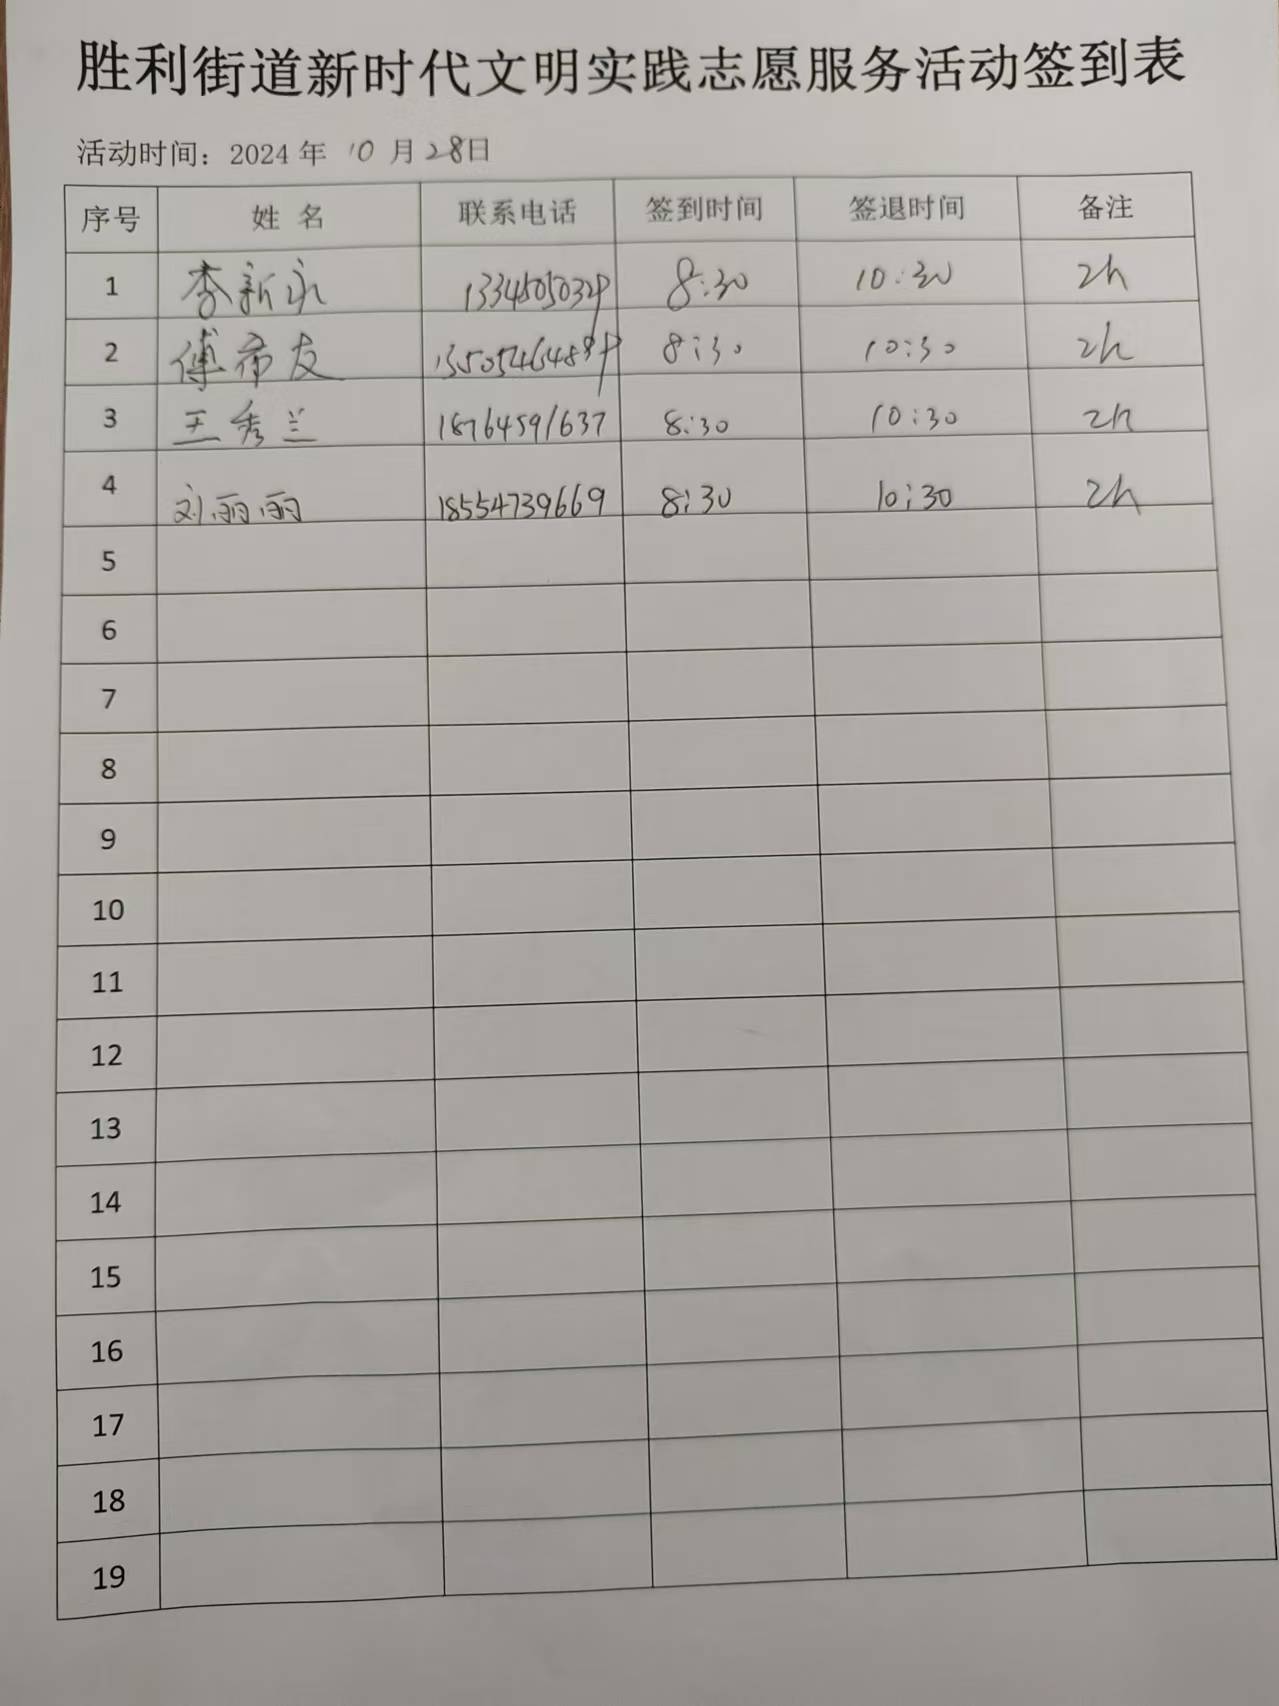 胜利街道新时代文明实践志愿服务活动签到表
活动时间：2024 年 10 月 28日
序号 姓 名 联系电话 签到时间 签退时间 备注
1 李新永 8:30 10:30 2h
2 傅希友 8:30 10:30 2h
3 王秀兰 18764591637 8:30 10:30 2h
4 刘丽丽 18554739669 8:30 10:30 2h
5
6
7
8
9
10
11
12
13
14
15
16
17
18
19